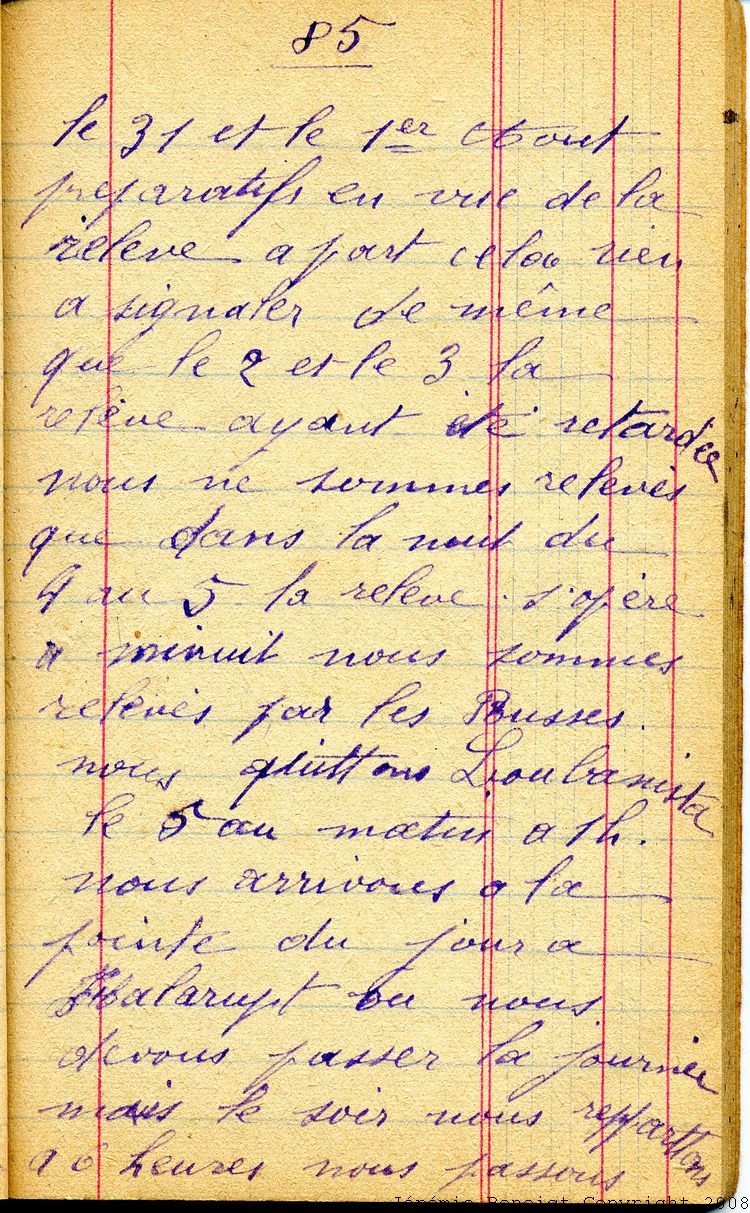 85
le 31 et le 1er Aout
preparatifs en vue de la
releve a part cela rien
a signaler de même
que le 2 et le 3 la
relève ayant été retardée
nous ne sommes relevés
que dans la nuit du
4 au 5 la releve s'opère
a minuit nous sommes
relevés par les Russes.
nous quittons Loubanista
le 5 au matin a 1h.
nous arrivons a la
pointe du jour a
ou nous
devons passer la journée
mais le soir nous reppartons
a 6 heures nous passons
Jérémie Benoist Copyright 2008